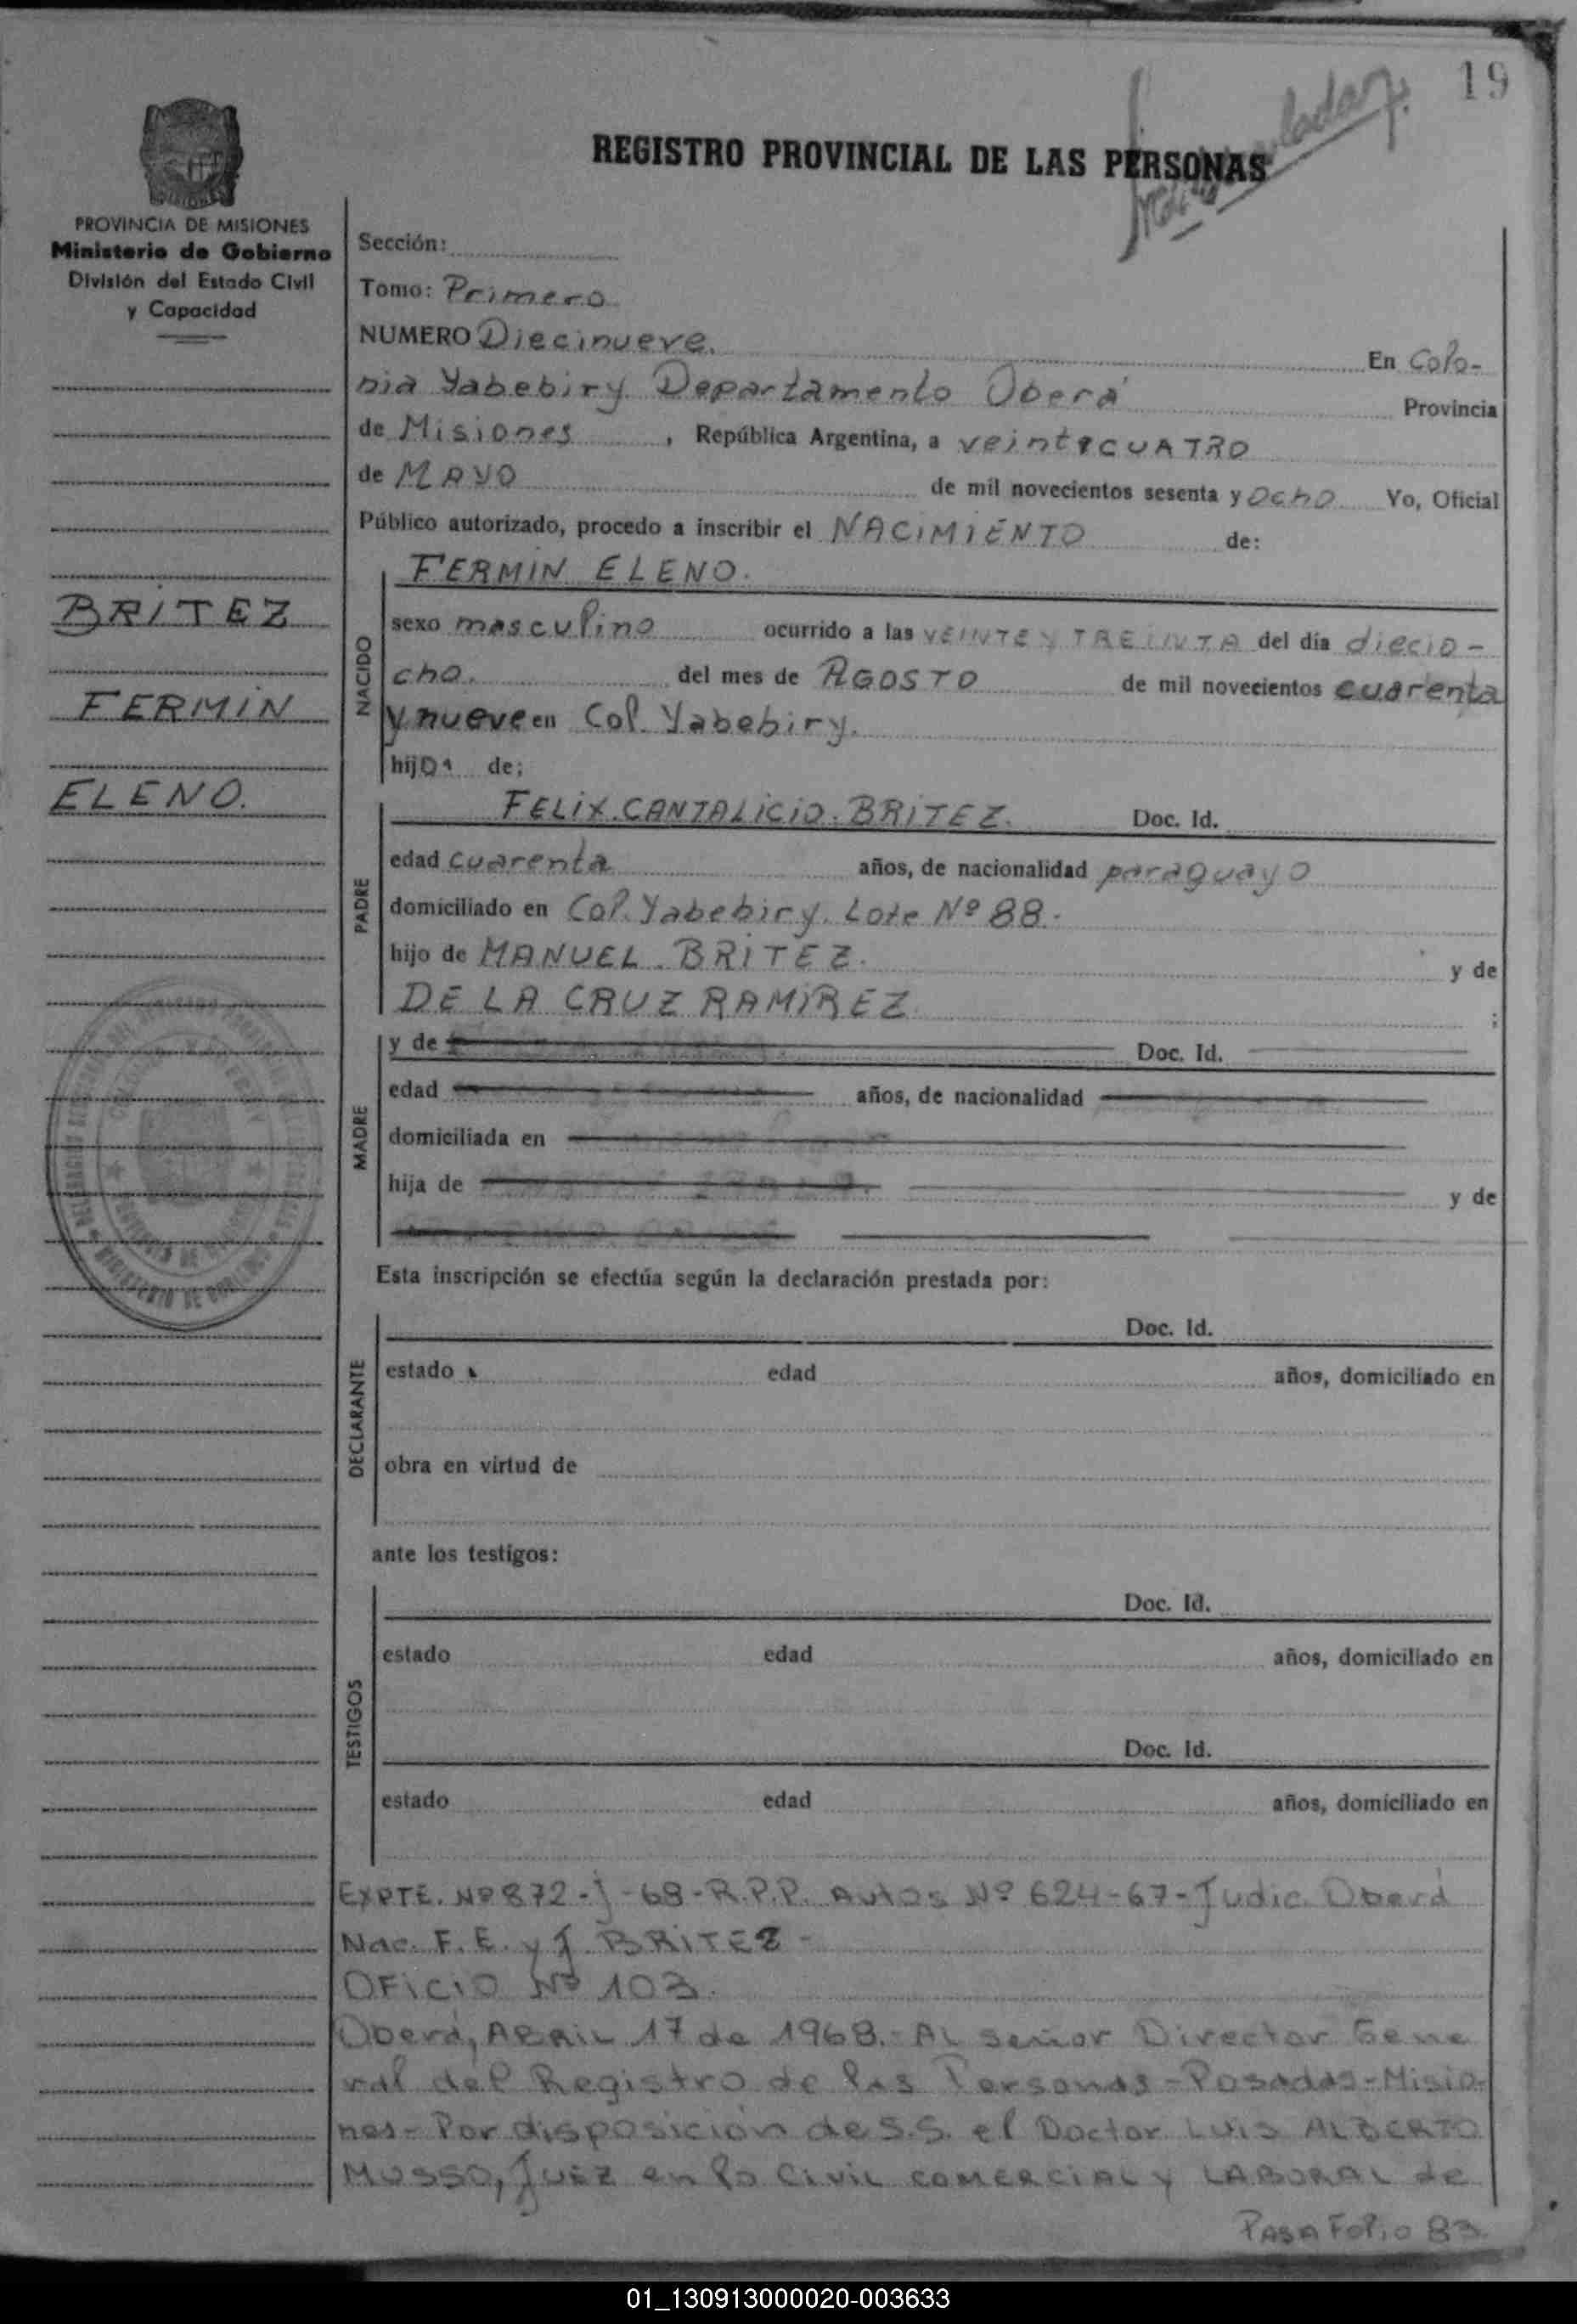 19
REGISTRO PROVINCIAL DE LAS PERSONAS
PROVINCIA DE MISIONES
Ministerio de Gobierno
División del Estado Civil
y Capacidad
BRITEZ
FERMIN
ELENO.
Sección:
Tomo: Primero
NUMERO Diecinueve. En Colo-
nia Yabebiry Departamento Oberá Provincia
de Misiones, República Argentina, a veinticUATRO
de MAYO de mil novecientos sesenta y ocho Yo, Oficial
Público autorizado, procedo a inscribir el NACIMIENTO de:
NACIDO
FERMIN ELENO.
sexo masculino ocurrido a las VEINTE Y TREINTA del día diecio-
cho. del mes de AGOSTO de mil novecientos cuarenta
y nueve en Col. Yabebiry.
hijo de;
PADRE
FELIX.CANTALICIO.BRITEZ. Doc. Id.
edad cuarenta años, de nacionalidad paraguayo
domiciliado en Col. Yabebiry. Lote Nº 88.-
hijo de MANUEL.BRITEZ. y de
DE LA CRUZ RAMIREZ. ;
MADRE
y de Doc. Id.
edad años, de nacionalidad
domiciliada en
hija de y de
Esta inscripción se efectúa según la declaración prestada por:
DECLARANTE
Doc. Id.
estado edad años, domiciliado en
obra en virtud de
ante los testigos:
TESTIGOS
Doc. Id.
estado edad años, domiciliado en
Doc. Id.
estado edad años, domiciliado en
EXPTE. Nº 872-J-68-R.P.P. Autos Nº 624-67-Judic. Oberá
Nac. F. E. y J. BRITEZ-
OFICIO Nº 103.
Oberá, ABRIL 17 de 1968.- AL señor Director Gene
ral del Registro de las Personas-Posadas-Misio-
nes- Por disposición de S.S. el Doctor LUIS ALBERTO
MUSSO, JUEZ en lo CIVIL COMERCIAL y LABORAL de
PASA FOLIO 83.
01_130913000020-003633